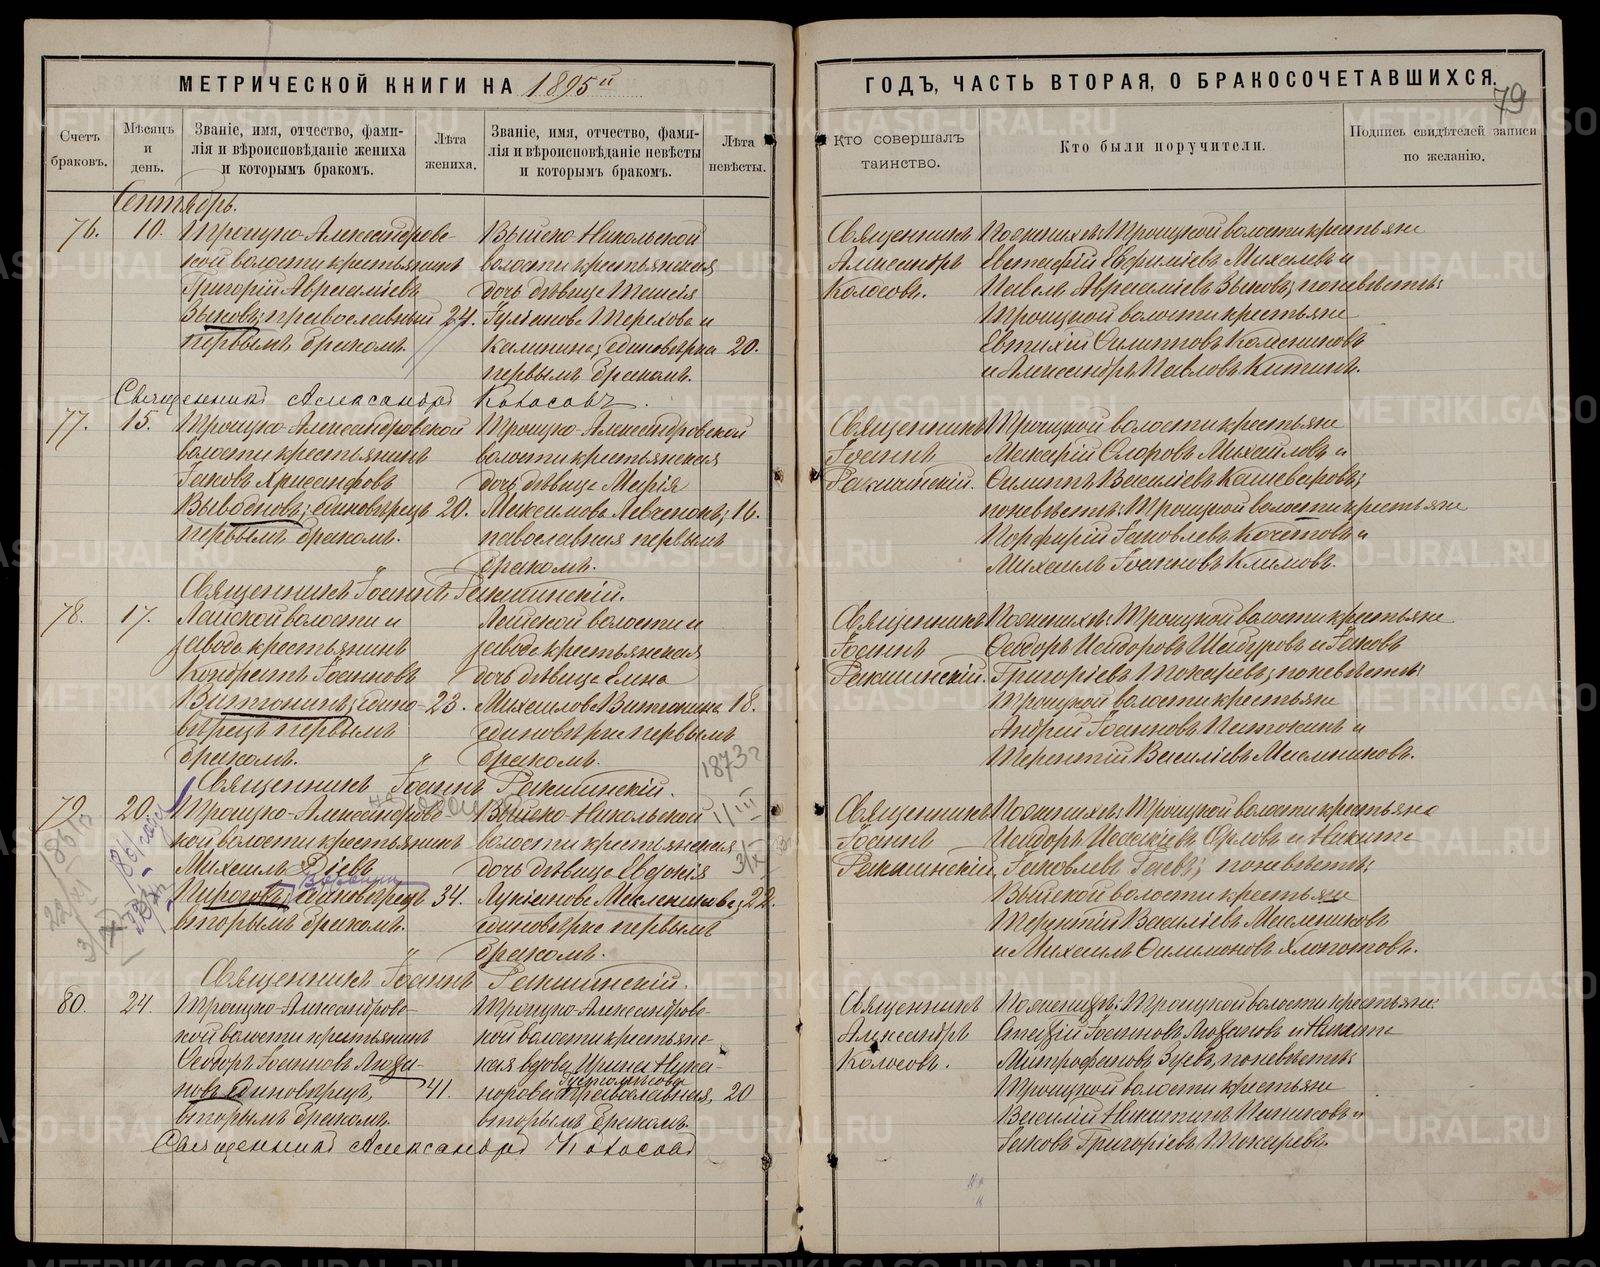 МЕТРИЧЕСКОЙ КНИГИ НА 1895й
Счетъ браковъ.
Мѣсяцъ и день.
Званіе, имя, отчество, фами-
лія и вѣроисповѣданіе жениха
и которымъ бракомъ.
Лѣта жениха.
Званіе, имя, отчество, фами-
лія и вѣроисповѣданіе невѣсты
и которымъ бракомъ.
Лѣта невѣсты.
Сентябрь.
76.
10.
Троицко-Александровс-
кой волости крестьянинъ
Григорій Аврааміевъ
Зыковъ; православный 24.
первымъ бракомъ.
Выйско-Никольской
волости крестьянская
дочь дѣвица Таисія
Гуліанова Терехова и
Калинина; единовѣрка 20.
первымъ бракомъ.
Священникъ Александръ Колосовъ.
77.
15.
Троицко-Александровской
волости крестьянинъ
Іаковъ Хрисанфовъ
единовѣрецъ 20.
первымъ бракомъ.
Троицко-Александровской
волости крестьянская
дочь дѣвица Марія
Максимова 16.
павославная первымъ
бракомъ.
Священникъ Іоаннъ
78.
17.
Лайской волости и
завода крестьянинъ
Кондратъ Іоанновъ
едино- 23.
вѣрецъ первымъ
бракомъ.
Лайской волости и
завода крестьянская
дочь дѣвица Елена
Михаилова 18.
единовѣрка первымъ
бракомъ.
Священникъ Іоаннъ
1873г
79.
20.
Троицко-Александровс-
кой волости крестьянинъ
Михаилъ Діевъ
Пироговъ; единовѣрецъ 34.
вторымъ бракомъ.
Выйско-Никольской
волости крестьянская
дочь дѣвица Евдокія
Лукіанова 22.
единовѣрка первымъ
бракомъ.
Священникъ Іоаннъ
80.
24.
Троицко-Александровс-
кой волости крестьянинъ
Ѳеодоръ Іоанновъ Лоза-
новъ единовѣрецъ, 41.
вторымъ бракомъ.
Троицко-Александровс-
кой волости крестьянс-
кая вдова Ирина Ника-
норова православная, 20
вторымъ бракомъ.
Священникъ Александръ Колосовъ
ГОДЪ, ЧАСТЬ ВТОРАЯ, О БРАКОСОЧЕТАВШИХСЯ.
79
Кто совершалъ
таинство.
Кто были поручители.
Подпись свидѣтелей записи
по желанію.
Священникъ
Александръ
Колосовъ.
По женихѣ: Троицкой волости крестьяне
Евстафій Евфиміевъ Михалевъ и
Павелъ Аврааміевъ Зыковъ; по невѣстѣ:
Троицкой волости крестьяне
Евтихій Филипповъ Колесниковъ
и Александръ Павловъ
Священникъ
Іоаннъ
Троицкой волости крестьяне
Макарій Флоровъ Михайловъ и
Филиппъ Василіевъ
по невѣстѣ: Троицкой волости крестьяне
Порфирій Іаковлевъ Кочетовъ и
Михаилъ Іоанновъ Климовъ.
Священникъ
Іоаннъ
По женихѣ: Троицкой волости крестьяне
Ѳеодоръ Исидоровъ и Іаковъ
Григоріевъ Токаревъ; по невѣстѣ:
Троицкой волости крестьяне
Андрей Іоанновъ и
Терентій Василіевъ Масленниковъ.
Священникъ
Іоаннъ
По женихѣ: Троицкой волости крестьяне
Исидоръ Исаакіевъ Орловъ и Никита
Іаковлевъ по невѣстѣ:
Выйской волости крестьяне
Терентій Василіевъ Масленниковъ
и Михаилъ Филимоновъ Хлопотовъ.
Священникъ
Александръ
Колосовъ.
По женихѣ: Троицкой волости крестьяне:
Іоанновъ Лозановъ и Никита
Митрофановъ Зуевъ, по невѣстѣ:
Троицкой волости крестьяне
Василій Никитинъ и
Іаковъ Григоріевъ Токаревъ.
METRIKI.GASO-URAL.RU